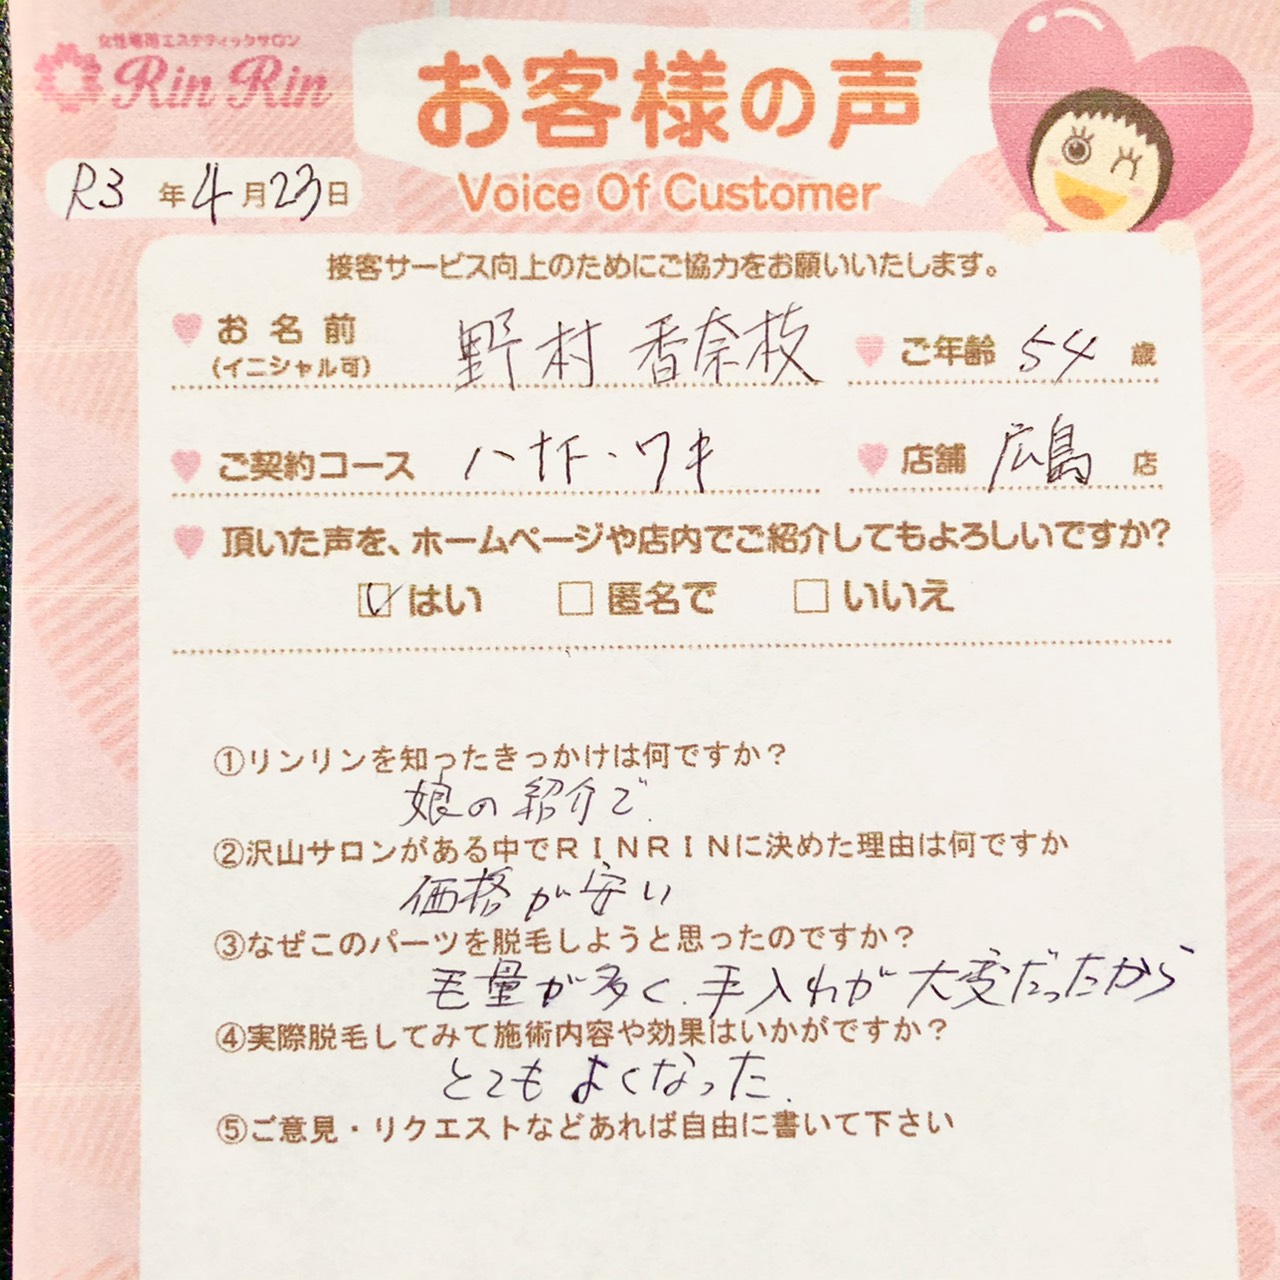 女性専用エステティックサロン
Rin Rin
お客様の声
Voice Of Customer
R3年4月23日
接客サービス向上のためにご協力をお願いいたします。
お名前 野村 香奈枝 ご年齢 54 歳
(イニシャル可)
ご契約コース ハナ下・ワキ 店舗 広島 店
頂いた声を、ホームページや店内でご紹介してもよろしいですか?
はい 匿名で いいえ
①リンリンを知ったきっかけは何ですか?
娘の紹介で.
②沢山サロンがある中でRINRINに決めた理由は何ですか
価格が安い
③なぜこのパーツを脱毛しようと思ったのですか?
毛量が多く、手入れが大変だったから
④実際脱毛してみて施術内容や効果はいかがですか?
とてもよくなった.
⑤ご意見・リクエストなどあれば自由に書いて下さい